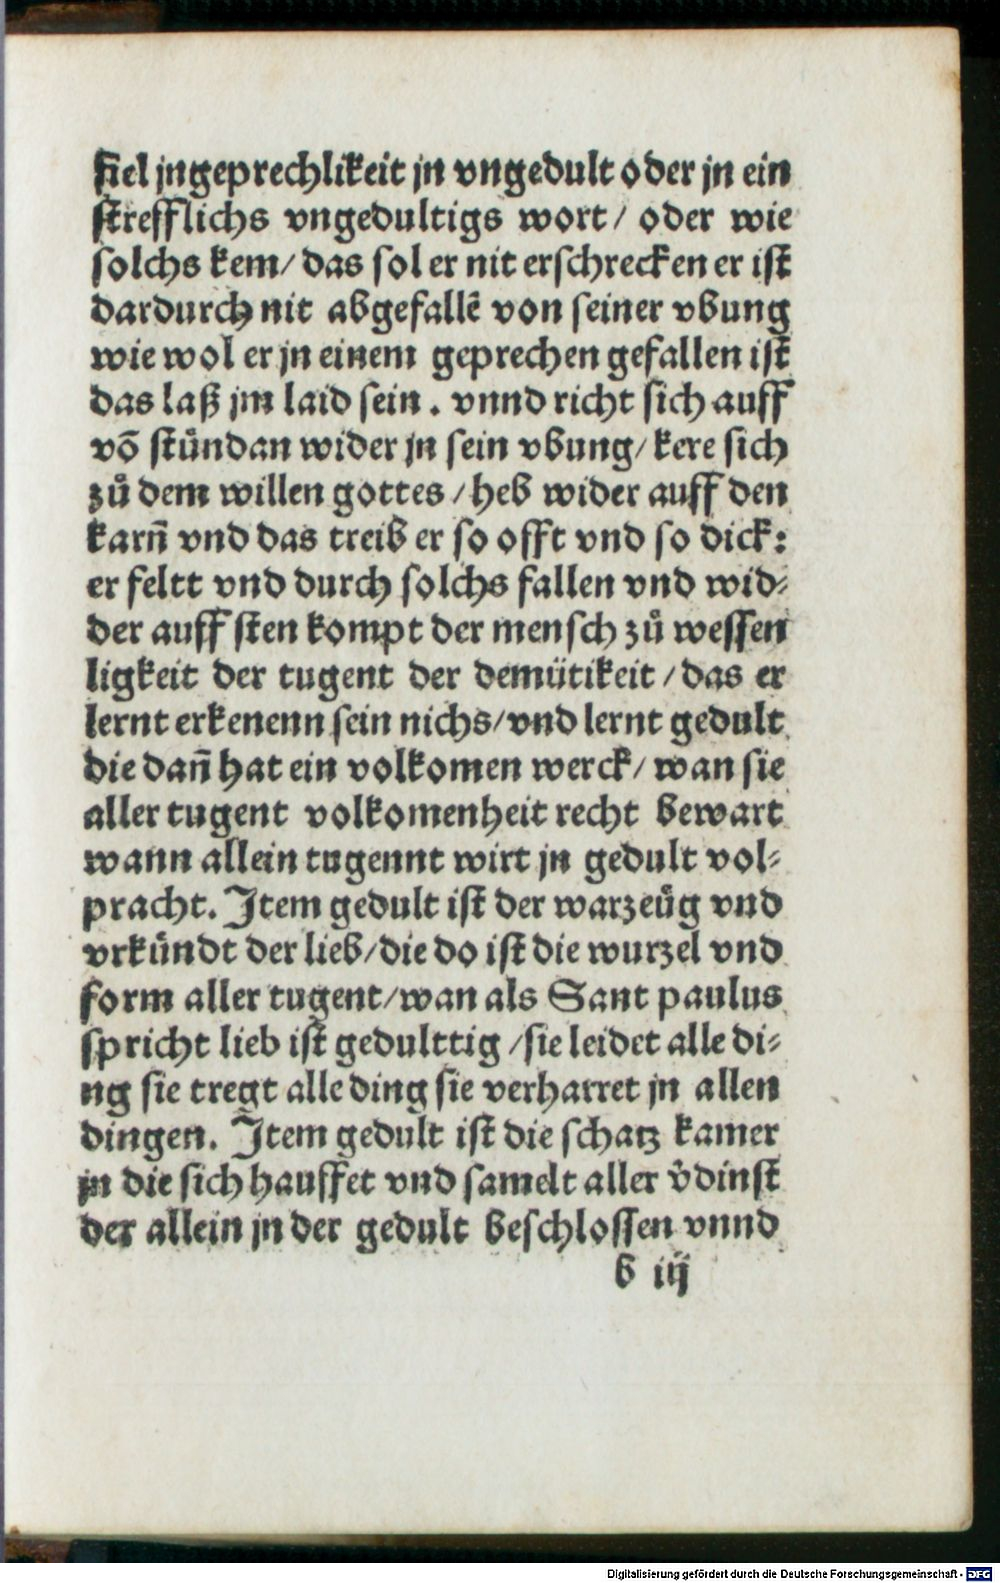 fiel jn geprechlikeit jn vngedult oder jn ein
strefflichs vngedultigs wort / oder wie
solchs kem / das sol er nit erschrecken er ist
dardurch nit abgefallē von seiner vbung
wie wol er jn einem geprechen gefallen ist
das laß jm laid sein . vnnd richt sich auff
vō stündan wider jn sein vbung / kere sich
zů dem willen gottes / heb wider auff den
karn̄ vnd das treib er so offt vnd so dick :
er feltt vnd durch solchs fallen vnd wid⸗
der auff sten kompt der mensch zů wessen
ligkeit der tugent der demütikeit / das er
lernt erkenenn sein nichs / vnd lernt gedult
die dan̄ hat ein volkomen werck / wan sie
aller tugent volkomenheit recht bewart
wann allein tugennt wirt jn gedult vol⸗
pracht. Item gedult ist der warzeüg vnd
vrkündt der lieb / die do ist die wurzel vnd
form aller tugent / wan als Sant paulus
spricht lieb ist gedulttig / sie leidet alle di⸗
ng sie tregt alle ding sie verharret jn allen
dingen. Item gedult ist die schatz kamer
jn die sich hauffet vnd samelt aller v̄dinst
der allein jn der gedult beschlossen vnnd
b iij
Digitalisierung gefördert durch die Deutsche Forschungsgemeinschaft - DFG